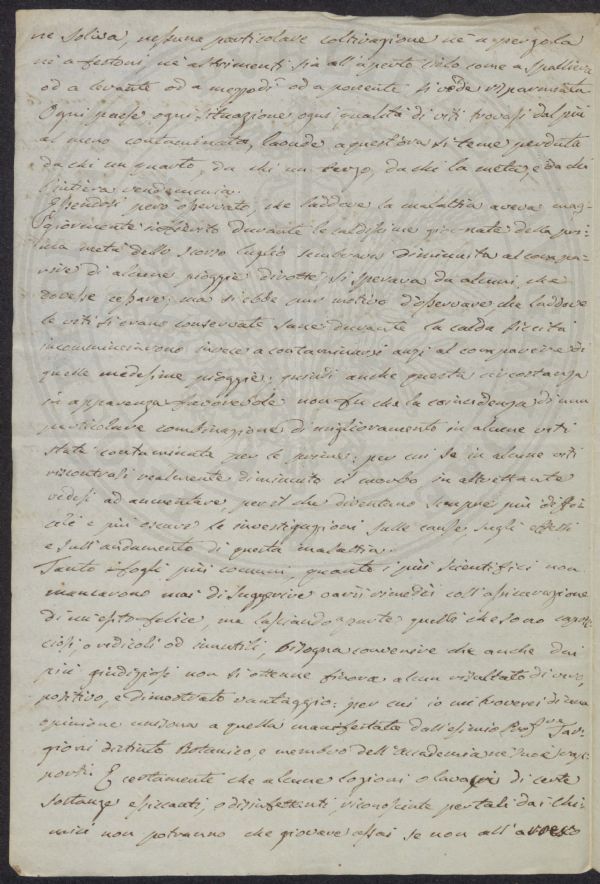 ne solida, nessuna particolare coltivazione nè a pergola
nè a festoni, nè altrimenti sia all'aperto Cielo come a Spalliera
od a levante od a mezzodì od a ponente si vede risparmiata
Ogni paese ogni situazione ogni qualità di viti trovasi dal più
al meno contaminato, laonde a quest'ora si teme perduta
da chi un quarto, da chi un terzo, da chi la metà, e da chi
l'intiera vendemmia.
Essendosi però osservato, che laddove la malattia aveva mag-
giormente infierito durante le caldissime giornate della pri-
ma metà dello scorso luglio sembrava diminuita al compa-
rire di alcune pioggie dirotte si sperava da alcuni, che
dovesse cessare; ma si ebbe pur motivo d'osservare che laddove
le viti si erano conservate sane durante la calda siccità
incominciavono invece a contaminarsi anzi al comparire di
quelle medesime pioggie; quindi anche questa circostanza
in apparenza favorevole non fu che la coincidenza di una
particolare combinazione di miglioramento in alcune viti
state contaminate per le prime; per cui se in alcune viti
riscontrasi realmente diminuito il morbo in altrettante
vedesi ad aumentare per il che diventano sempre più diffi-
cili e più oscure le investigazioni sulle cause sugli effetti
e sull'andamento di questa malattia.
Tanto i fogli più comuni, quanto i più scientifici non
mancavono mai di suggerire varii rimedii coll'assicurazione
di un'esito felice, ma lasciando a parte quelli che sono capric-
ciosi, o ridicoli od innutili, bisogna convenire che anche dai
più giudiziosi non si ottenne finora alcun risultato di vero,
positivo, e dimostrato vantaggio; per cui io mi troverei di una
opinione unisona a quella manifestata dall'esimio Prof.re Tar-
gioni distinto Botanico e membro dell'Accademia ne' suoi rap-
porti. E certamente che alcune lozioni o lavacri di certe
sostanze essiccanti, o disinfettanti, riconosciute per tali dai Chi-
mici non potranno che giovare assai se non all'